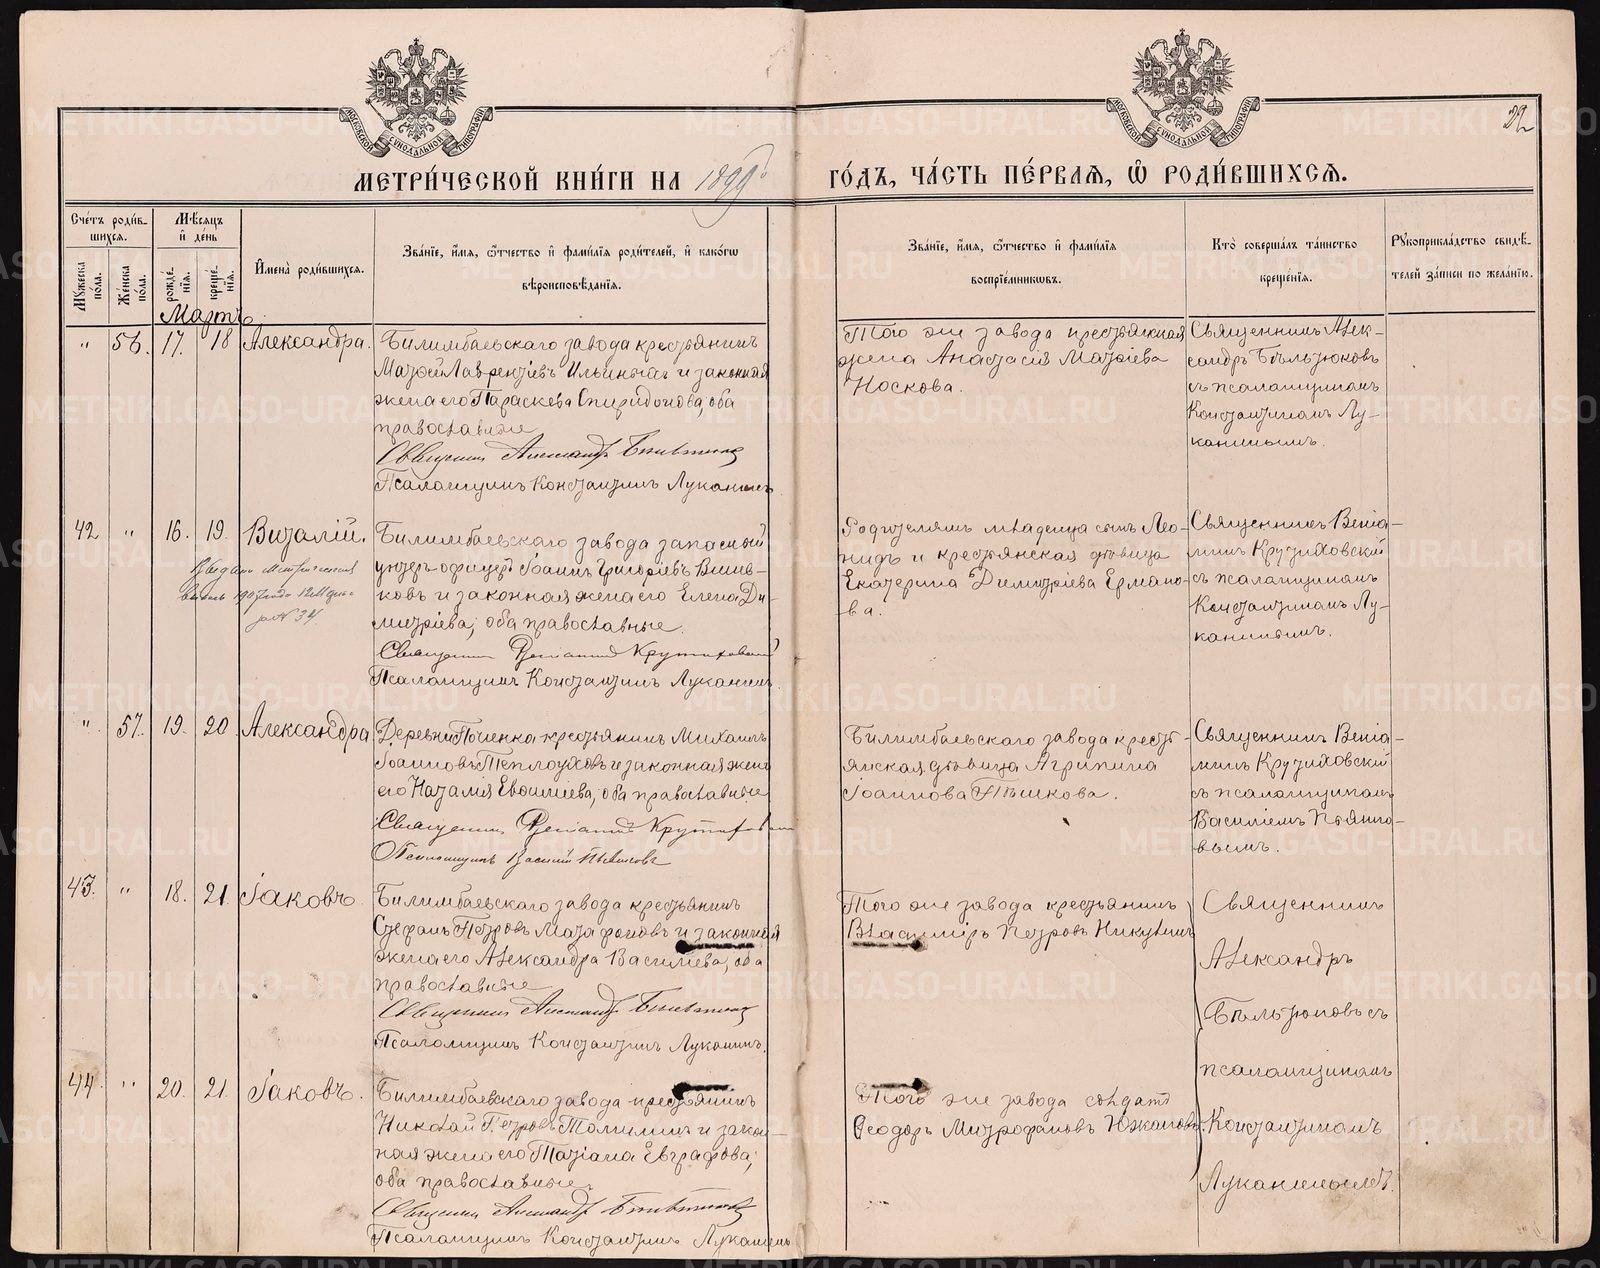 МОСКОВСКОЙ СѴНОДАЛЬНОЙ ТИПОГРАФІИ
МОСКОВСКОЙ СѴНОДАЛЬНОЙ ТИПОГРАФІИ
22
МЕТРИ́ЧЕСКОЙ КНИ́ГИ НА 1899 ГО́ДЪ, ЧА́СТЬ ПЕ́РВАѦ, Ѽ РОДИ́ВШИХСѦ.
Сче́тъ роди́в-
шихсѧ.
Мꙋ́жеска по́ла.
Же́нска по́ла.
Мѣ́сѧцъ
и҆ де́нь
рожде́-нїѧ.
креще́-нїѧ.
И҆мена̀ роди́вшихсѧ.
Зва́нїе, и҆́мѧ, ѻ҆́тчество и҆ фами́лїѧ роди́телей, и҆ како́гѡ
вѣроисповѣ́данїѧ.
Зва́нїе, и҆́мѧ, ѻ҆́тчество и҆ фами́лїѧ
воспрїе́мникѡвъ.
Кто̀ соверша́лъ та́инство
креще́нїѧ.
Рꙋкоприкла́дство свидѣ́-
телей за́писи по жела́нїю.
Мартъ
" 56. 17. 18 Александра.
Билимбаевскаго завода крестьянинъ
Матѳей Лаврентіевъ Ильиныхъ и законная
жена его Параскева Спиридонова, оба
православные
Священникъ Александръ Бѣльтюковъ
Псаломщикъ Константинъ Луканинъ
Того же завода крестьянская
жена Анастасія Матѳіева
Носкова.
Священникъ Алек-
сандръ Бѣльтюковъ
съ псаломщикомъ
Константиномъ Лу-
канинымъ.
42 " 16. 19. Виталій.
Выдано метрическая
1907 года 12
за № 34
Билимбаевскаго завода запасный
унтеръ-офицеръ Іоаннъ Григоріевъ
и законная жена его Елена Ди-
митріева, оба православные.
Священникъ Веніаминъ Крутиховскій
Псаломщикъ Константинъ Луканинъ.
Родителямъ младенца сынъ Лео-
нидъ и крестьянская дѣвица
Екатерина Димитріева Ермако-
ва.
Священникъ Веніа-
минъ Крутиховскій
съ псаломщикомъ
Константиномъ Лу-
канинымъ.
" 57. 19. 20. Александра
Деревни Починка крестьянинъ Михаилъ
Іоанновъ Теплоуховъ и законная жена
его Наталія Евѳиміева, оба православные
Священникъ Веніаминъ Крутиховскій
Псаломщикъ Василій Пьянковъ
Билимбаевскаго завода кресть-
янская дѣвица Агрипина
Іоаннова Пѣшкова.
Священникъ Веніа-
минъ Крутиховскій
съ псаломщикомъ
Василіемъ Пьянко-
вымъ.
43. " 18. 21. Іаковъ
Билимбаевскаго завода крестьянинъ
Стефанъ Петровъ Малафѣевъ и законная
жена его Александра Василіева, оба
православные
Священникъ Александръ Бѣльтюковъ
Псаломщикъ Константинъ Луканинъ.
Того же завода крестьянинъ
Владиміръ Петровъ Никулинъ
Священникъ
Александръ
Бѣльтюковъ съ
псаломщикомъ
Константиномъ
Луканинымъ.
44 " 20. 21. Іаковъ.
Билимбаевскаго завода крестьянинъ
Николай Петровъ Томилинъ и закон-
ная жена его Татіана Евграфова,
оба православные.
Священникъ Александръ Бѣльтюковъ
Псаломщикъ Константинъ Луканинъ
Того же завода солдатъ
Ѳеодоръ Митрофановъ Южаковъ